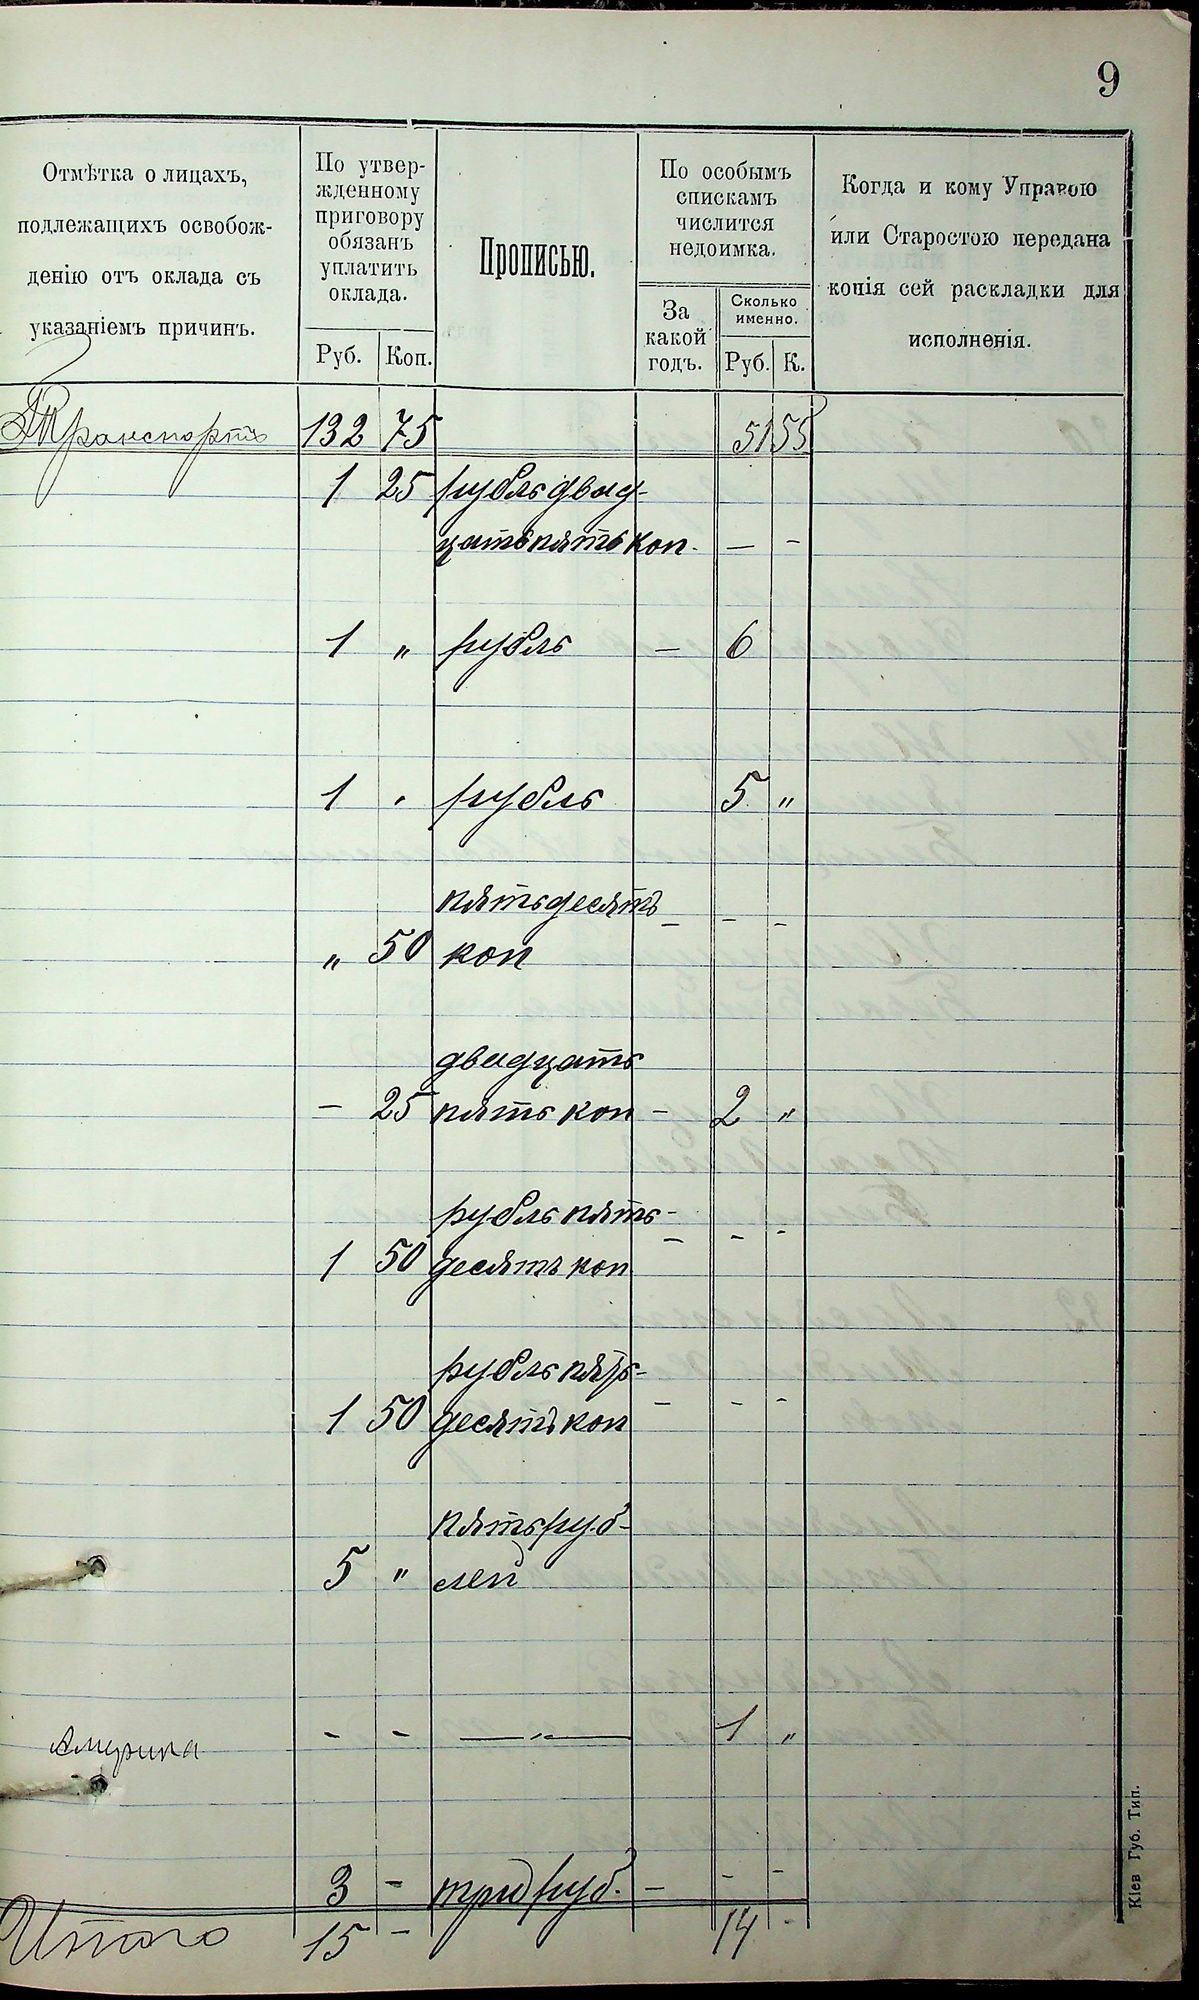 9
Отмѣтка о лицахъ,
подлежащихъ освобож-
денію отъ оклада съ
указаніемъ причинъ.
По утвер-
жденному
приговору
обязанъ
уплатить
оклада.
Руб. Коп.
Прописью.
По особымъ
спискамъ
числится
недоимка.
За
какой
годъ.
Сколько
именно.
Руб. К.
Когда и кому Управою
или Старостою передана
копія сей раскладки для
исполненія.
Транспортъ 132 75 51 55
1 25 рубль двад-
цать пять коп. — -
1 „ рубль — 6
1 „ рубль 5 „
пятьдесятъ
„ 50 коп - - -
двадцать
- 25 пять коп - 2 „
рубль пять-
1 50 десятъ коп - - -
рубль пять-
1 50 десятъ коп - - -
пять руб-
5 „ лей
Америка - - — „ — 1 „
3 - три руб. - - -
Итого 15 - 14 -
Кіев Губ. Тип.